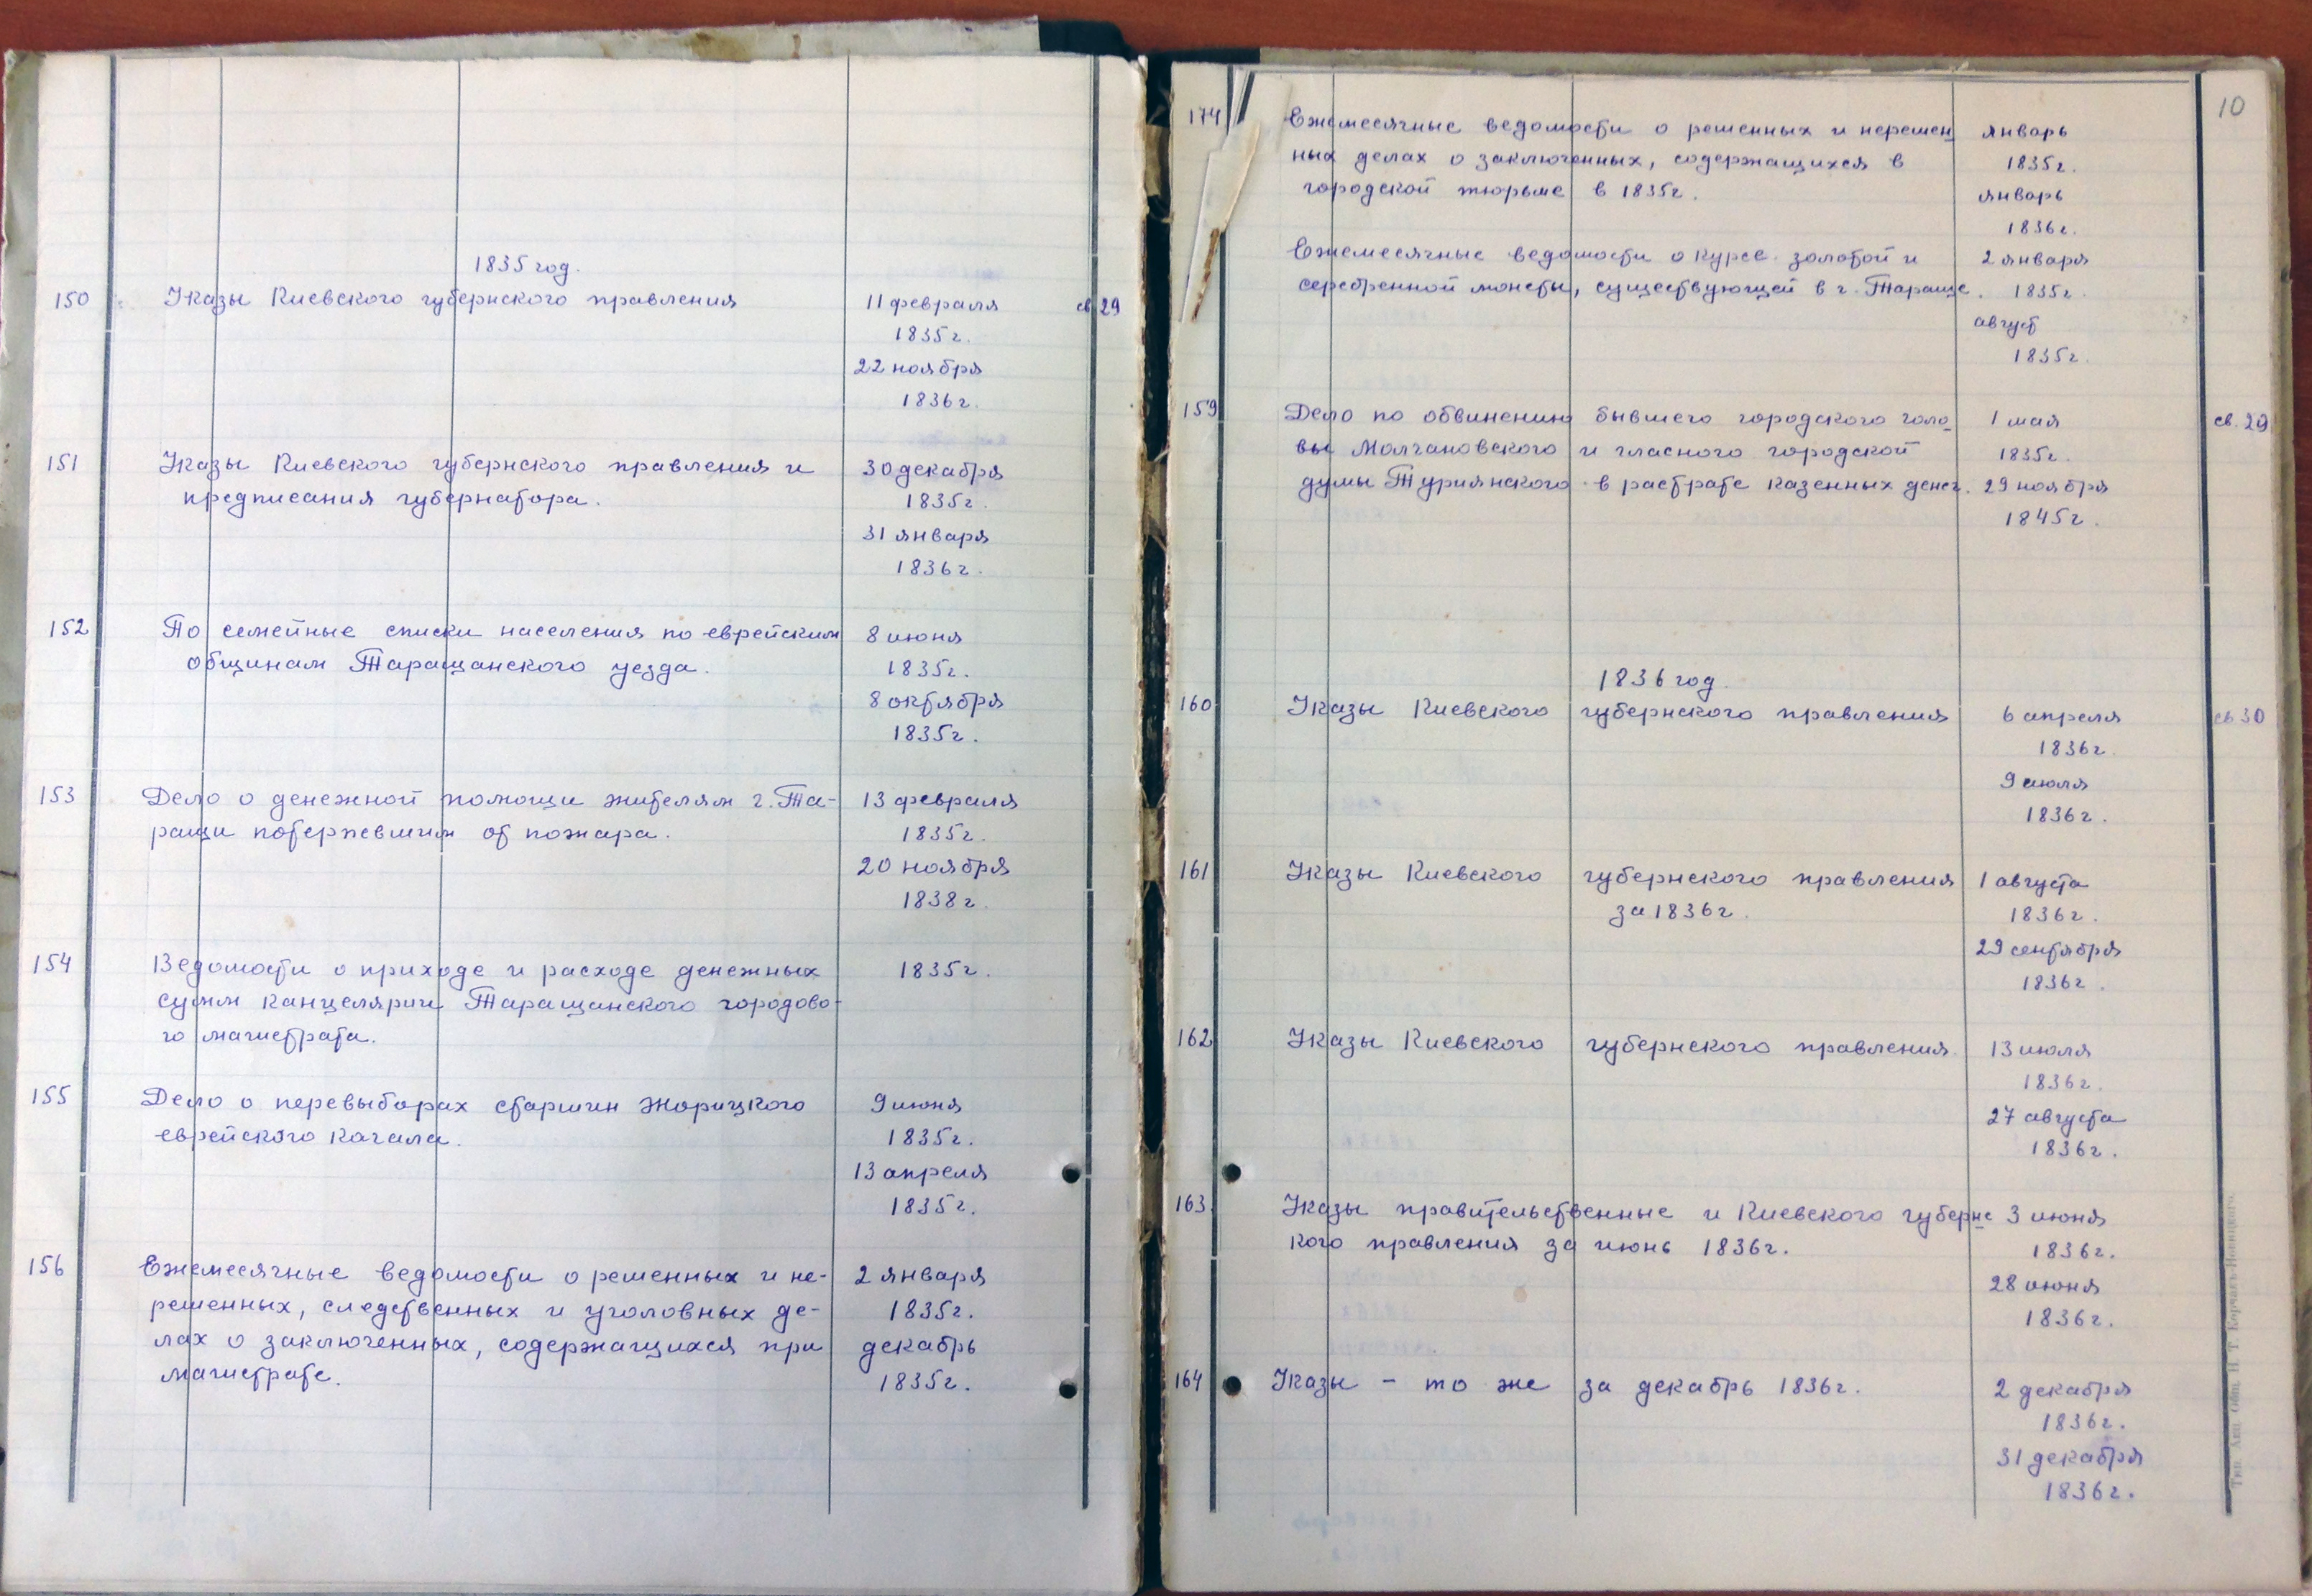 1835 год.
150 Указы Киевского губернского правления 11 февраля св. 29
1835г.
22 ноября
1836г.
151 Указы Киевского губернского правления и 30 декабря
предписания губернатора. 1835г.
31 января
1836г.
152 По семейные списки населения по еврейским 8 июня
общинам Таращанского уезда. 1835г.
8 октября
1835г.
153 Дело о денежной помощи жителям г. Та- 13 февраля
ращи потерпевшим от пожара. 1835г.
20 ноября
1838г.
154 Ведомости о приходе и расходе денежных 1835г.
сумм канцелярии Таращанского городово-
го магистрата.
155 Дело о перевыборах старшин Жорицкого 9 июня
еврейского кагала. 1835г.
13 апреля
1835г.
156 Ежемесячные ведомости о решенных и не- 2 января
решенных, следственных и уголовных де- 1835г.
лах о заключенных, содержащихся при декабрь
магистрате. 1835г.
10
174 Ежемесячные ведомости о решенных и нерешен январь
ных делах о заключенных, содержащихся в 1835г.
городской тюрьме в 1835г. январь
1836г.
Ежемесячные ведомости о курсе золотой и 2 января
серебренной монеты, существующей в г. Тараще. 1835г.
август
1835г.
159 Дело по обвинению бывшего городского голо 1 мая св. 29
вы Молчановского и гласного городской 1835г.
думы Туриянского в растрате казенных денег. 29 ноября
1845г.
1836 год.
160 Указы Киевского губернского правления 6 апреля св 30
1836г.
9 июля
1836г.
161 Указы Киевского губернского правления 1 августа
за 1836г. 1836г.
29 сентября
1836г.
162 Указы Киевского губернского правления 13 июля
1836г.
27 августа
1836г.
163 Указы правительственные и Киевского губернс 3 июня
кого правления за июнь 1836г. 1836г.
28 июня
1836г.
164 Указы - то же за декабрь 1836г. 2 декабря
1836г.
31 декабря
1836г.
Тип. Акц. Общ. Н. Т. Корчакъ-Новицкаго.